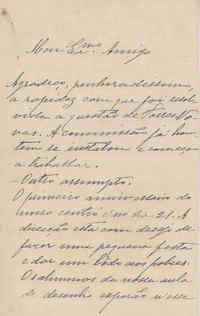 Meu Ex.mo Amigo
Agradeço, penhoradissimo,
a rapidez com que foi resol-
vida a questão de Torres No-
vas. A commissão já hon-
tem se installou e começou
a trabalhar.
- Outro assumpto.
O primeiro anniversario do
nosso centro é no dia 21. A
direcção está com desejo de
fazer uma pequena festa
e dar um bodo aos pobres.
Os alumnos da nossa aula
de desenho